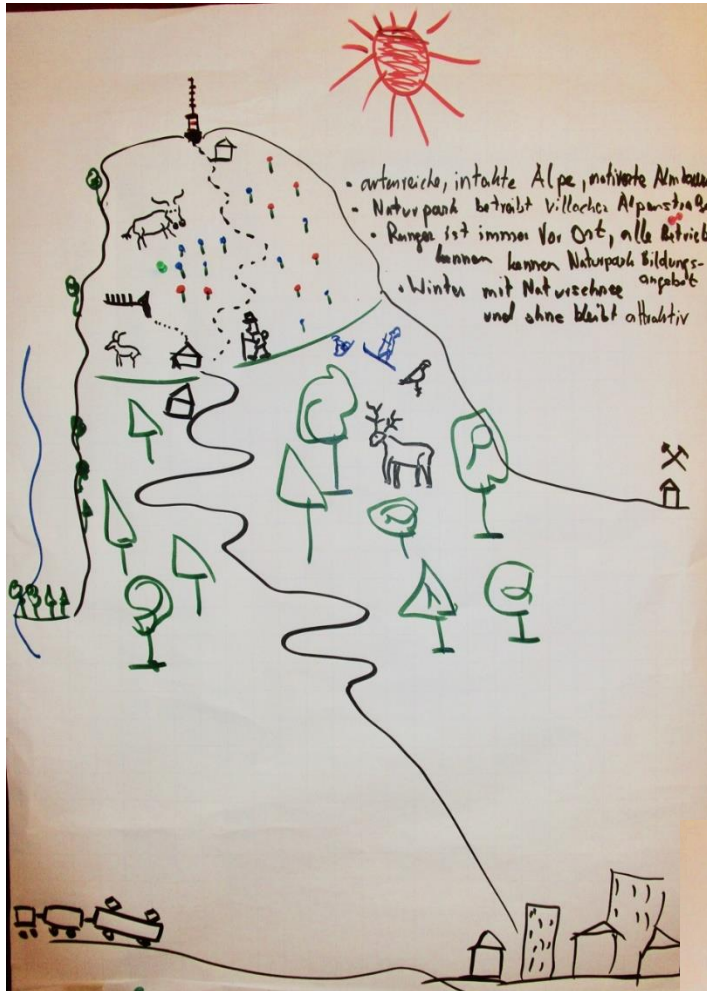 • artenreiche, intakte Alpe, motivierte
• Naturpark betreibt Villacher Alpenstraße
• Ranger ist immer Vor Ort, alle Betriebe
kennen kennen Naturpark Bildungs-
angebot
• Winter mit Naturschnee
und ohne bleibt attraktiv